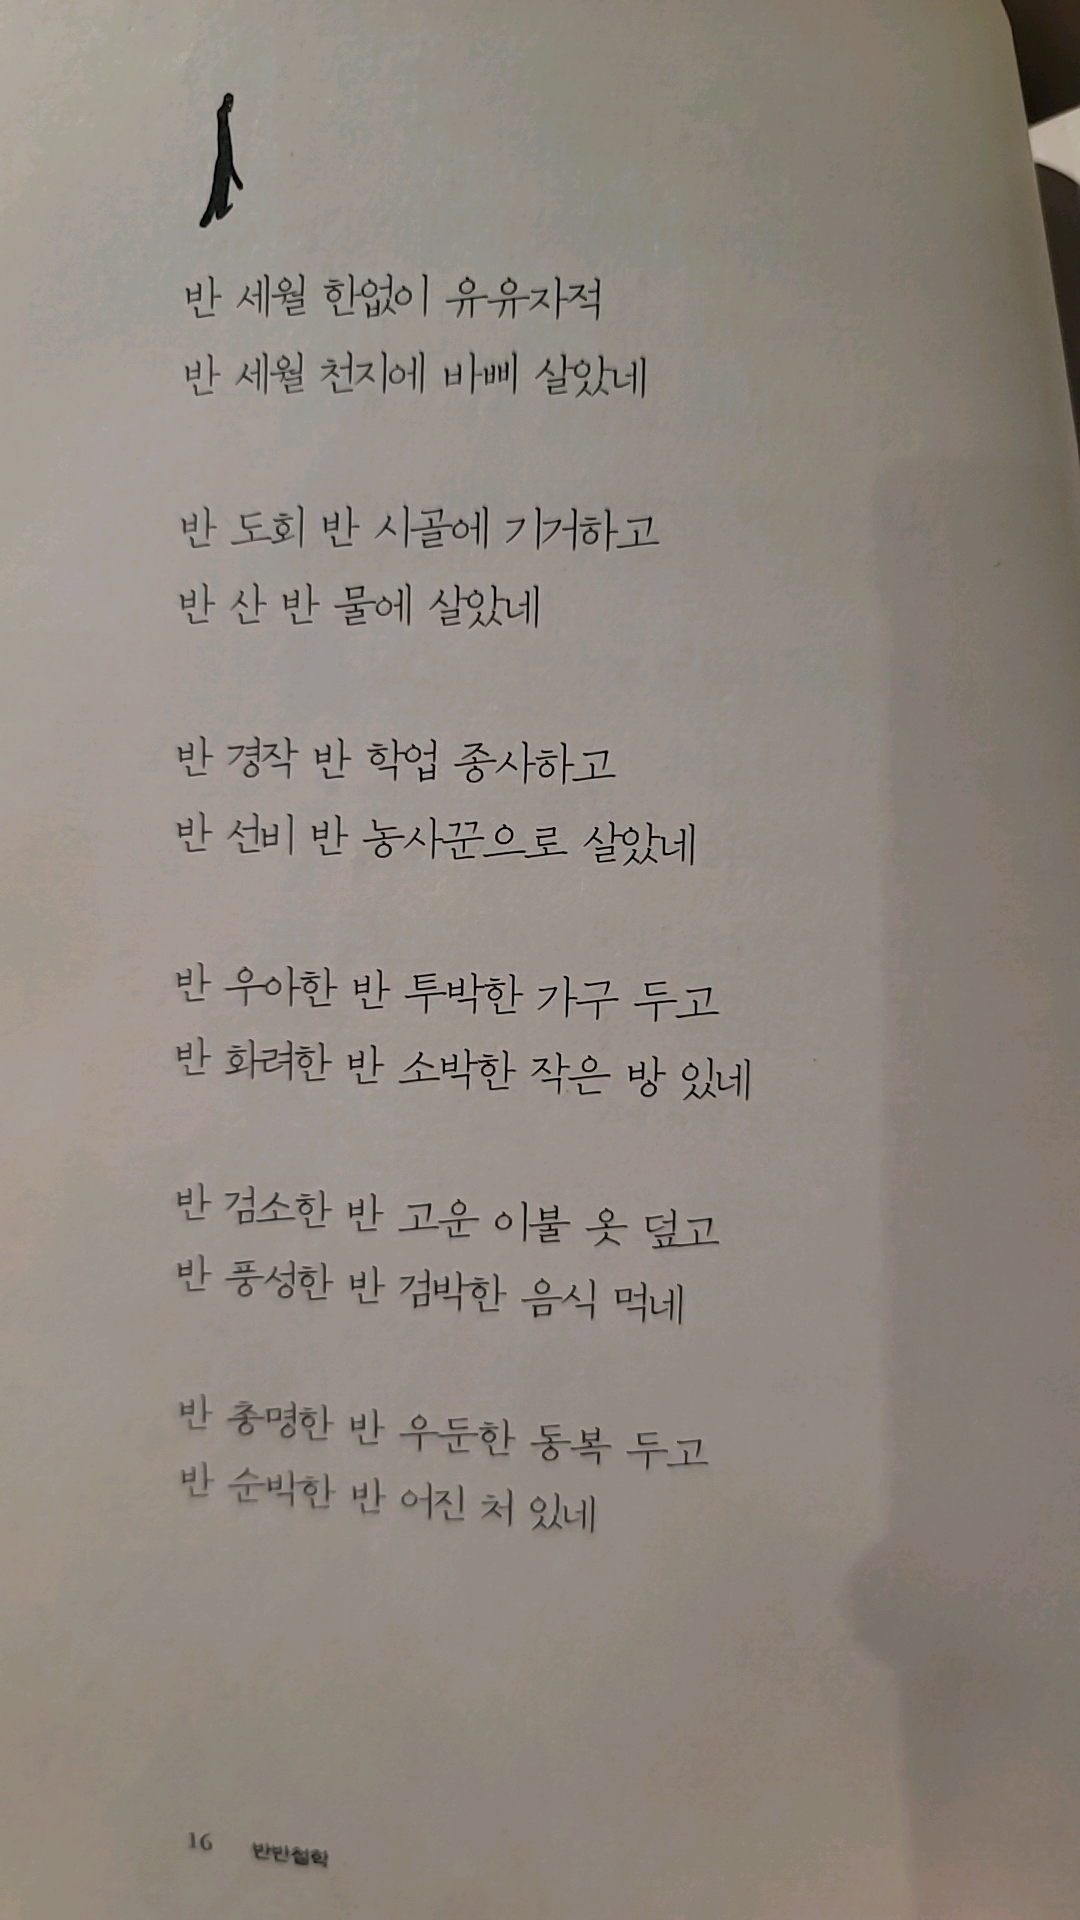 반 세월 한없이 유유자적
반 세월 천지에 바삐 살았네
반 도회 반 시골에 기거하고
반 산 반 물에 살았네
반 경작 반 학업 종사하고
반 선비 반 농사꾼으로 살았네
반 우아한 반 투박한 가구 두고
반 화려한 반 소박한 작은 방 있네
반 검소한 반 고운 이불 옷 덮고
반 풍성한 반 검박한 음식 먹네
반 총명한 반 우둔한 동복 두고
반 순박한 반 어진 처 있네
16 반반철학